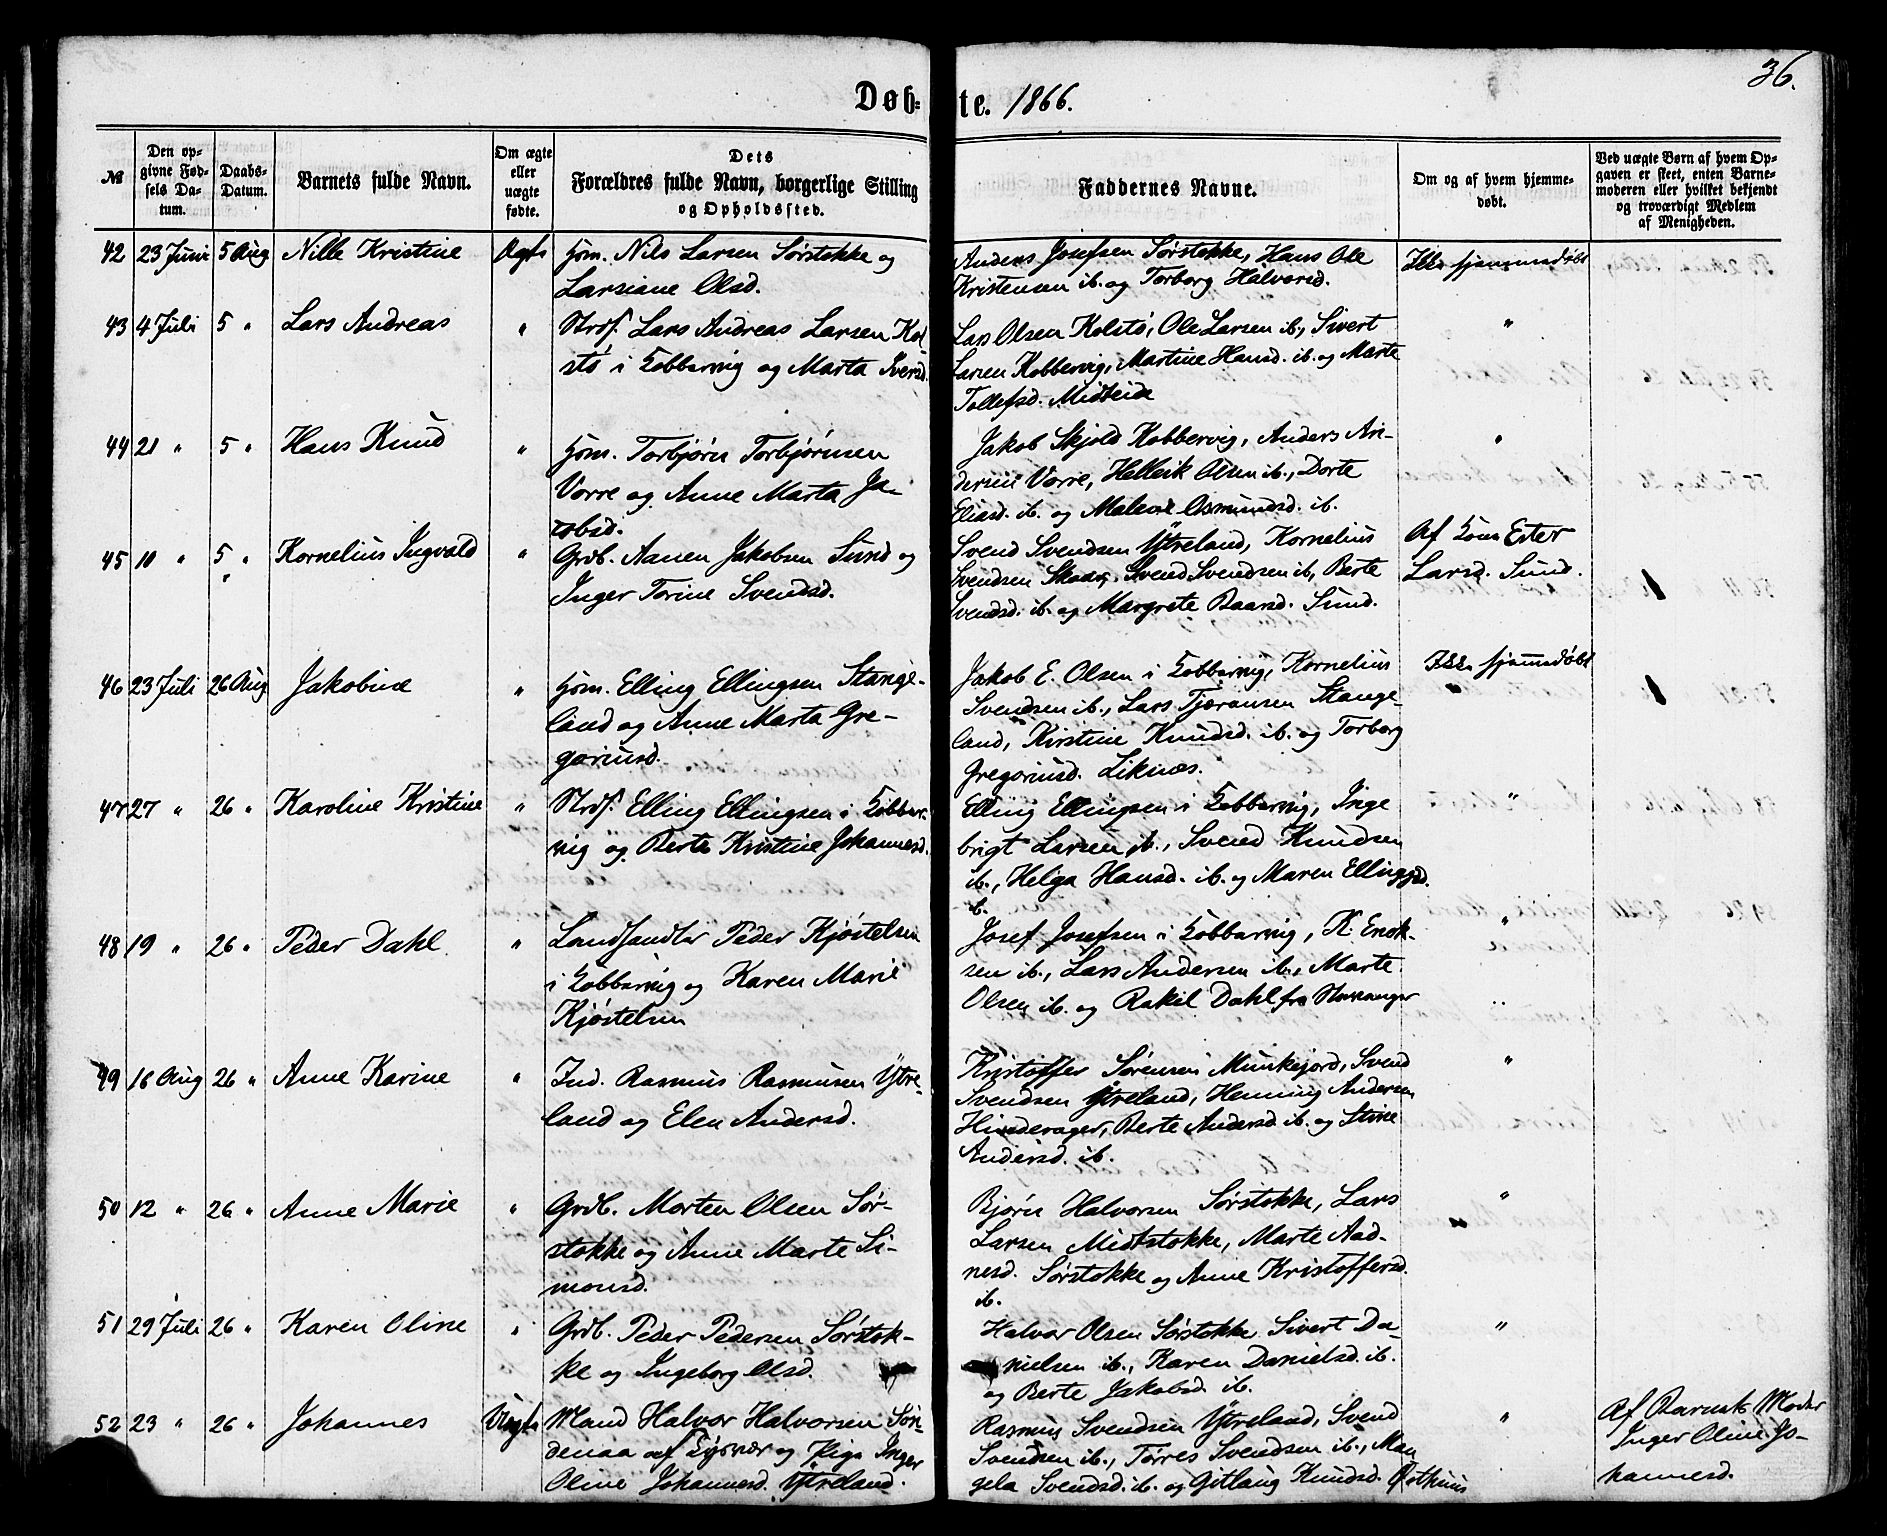 36.
Døbte. 1866.
№
Den opgivne Fødsels Datum.
Daabs-Datum.
Barnets fulde Navn.
Om ægte eller uægte fødte.
Dets Forældres fulde Navn, borgerlige Stilling og Opholdssted.
Faddernes Navne.
Om og af hvem hjemmedøbt.
Ved uægte Børn af hvem Opgaven er skeet, enten Barnemoderen eller hvilket bekjendt og troværdigt Medlem af Menigheden.
42 23 Juni 5 Aug Nille Kristine Ægte
Hsm. Nils Larsen Sørstokke og
Larsiane Olsd.
Anders Josefsen Sørstokke, Hans Ole
Kristensen ib. og Torborg Halvorsd.
Ikke hjemmedøbt
43 4 Juli 5 " Lars Andreas "
Strdf. Lars Andreas Larsen Kol-
stø i Kobbervig og Marta Iversd.
Lars Olsen Kolstø, Ole Larsen ib., Sivert
Larsen Kobbervig, Martine Hansd. ib. og Marte
Tollefsd. Midteide
"
44 21 " 5 " Hans Knud "
Hsm. Torbjørn Torbjørnsen
Vorre og Anne Marta Ja-
cobsd.
Jakob Skjold Kobbervig, Anders An-
dersen Vorre, Helleik Olsen ib., Dorte
Eliasd. ib. og Malene Osmundsd. ib.
"
45 10 " 5 " Kornelius Ingvald "
Grdb. Aanen Jakobsen Sund og
Inger Torine Svendsd.
Svend Svendsen Ytreland, Kornelius
Svendsen Skaar, Svend Svendsen ib., Berte
Svendsd. ib. og Margrete Baarsd. Sund.
Af Kone Ester
Larsd. Sund.
46 23 Juli 26 Aug Jakobine "
Hsm. Elling Ellingsen Stange-
land og Anne Marta Gre-
goriusd.
Jakob E. Olsen i Kobbervig, Kornelius
Svendsen ib., Lars Tjæransen Stange-
land, Kirstine Knudsd. ib. og Torborg
Gregoriusd. Liknes.
Ikke hjemmedøbt
47 27 " 26 " Karoline Kristine "
Strdf. Elling Ellingsen i Kobber-
vig og Berte Kristine Johannesd.
Elling Ellingsen i Kobbervig, Inge
brigt Larsen ib., Svend Knudsen
ib., Helga Hansd. ib. og Maren Ellingsd.
ib.
"
48 19 " 26 " Peder Dahl "
Landhandler Peder Kjøstelsen
i Kobbervig og Karen Marie
Kjøstelsen
Josef Josefsen i Kobbervig, K. Enok-
sen ib., Lars Andersen ib., Marte
Olsen ib. og Rakil Dahl fra Stavanger
"
49 16 Aug 26 " Anne Karine "
Ind. Rasmus Rasmusen Ytre-
land og Elen Andersd.
Kristoffer Sørensen Munkejord, Svend
Svendsen Ytreland, Henning Andersen
Hinderager, Berte Andersd ib. og Stine
Andersd. ib.
"
50 12 " 26 " Anne Marie "
Grdb. Morten Olsen Sør-
stokke og Anne Marte Si-
monsd.
Bjørn Halvorsen Sørstokke, Lars
Larsen Midtstokke, Marte Aad-
nesd. Sørstokke og Anne Kristoffersd.
ib.
"
51 29 Juli 26 " Karen Oline "
Grdb. Peder Pedersen Sørstok-
ke og Ingeborg Olsd.
Halvor Olsen Sørstokke Sivert Da-
nielsen ib., Karen Danielsd. ib.
og Berte Jakobsd. ib.
"
52 23 " 26 " Johannes Uægte
Mand Halvor Halvorsen Søn-
denaa af Tysvær og Pige Inger
Oline Johannesd. Ytreland.
Rasmus Svendsen Ytreland, Svend
Svendsen ib., Tørres Svendsen ib., Man
gela Svendsd. ib. og Gitlaug Knudsd.
"
Af Barnets Moder
Inger Oline Jo-
hannesd.